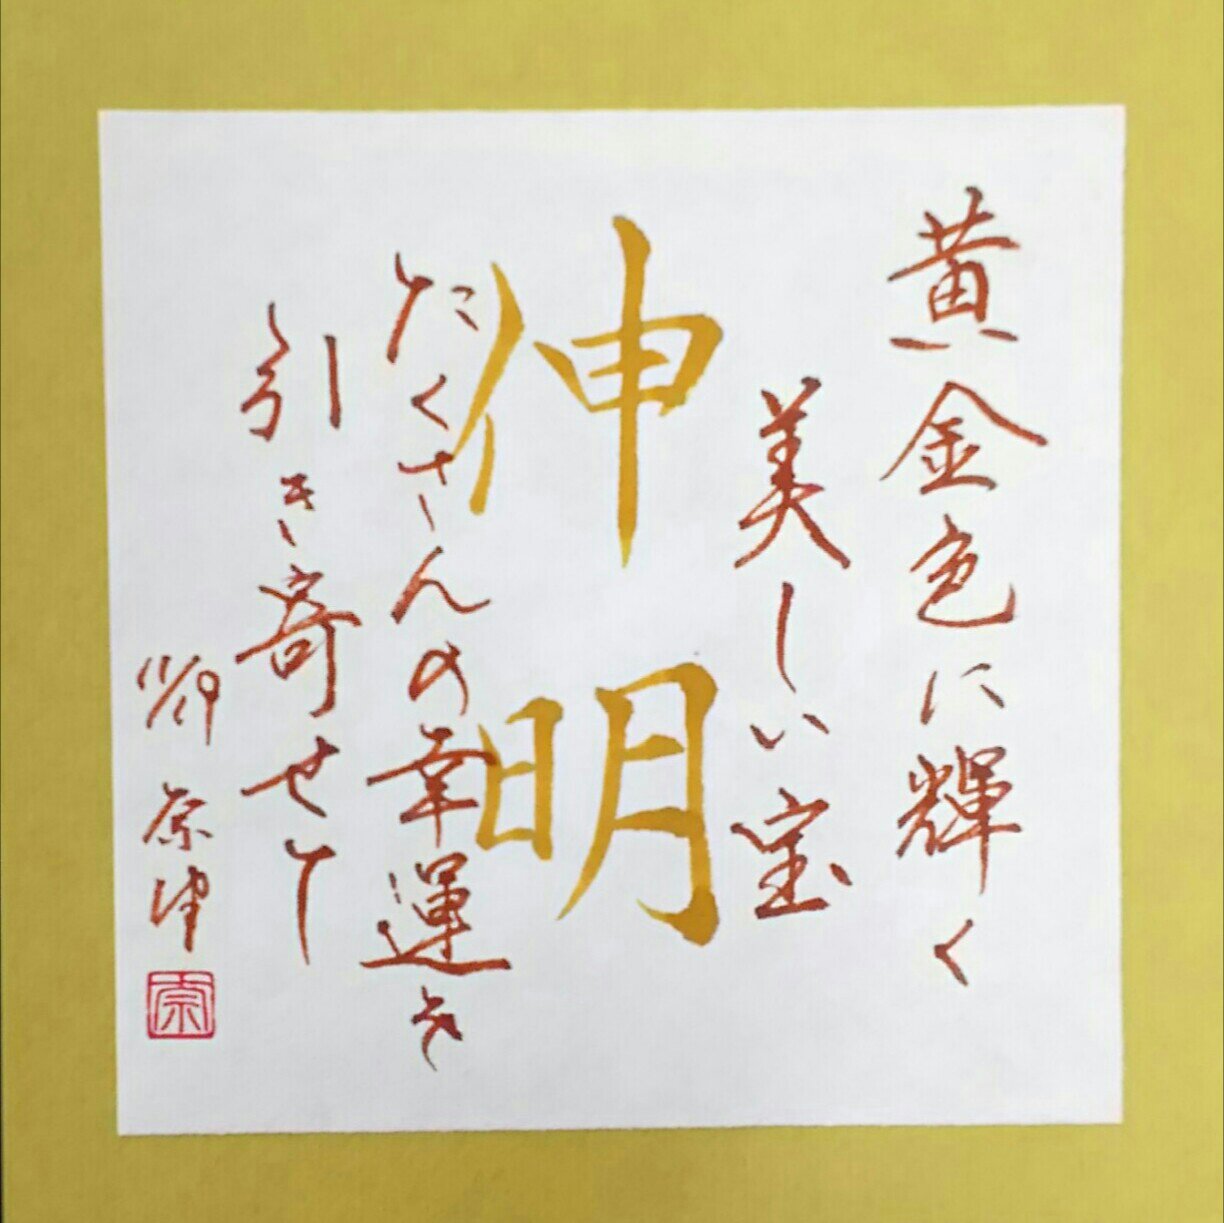 黄金色に輝く
美しい宝
伸明
たくさんの幸運を
引き寄せて
11/19
宗